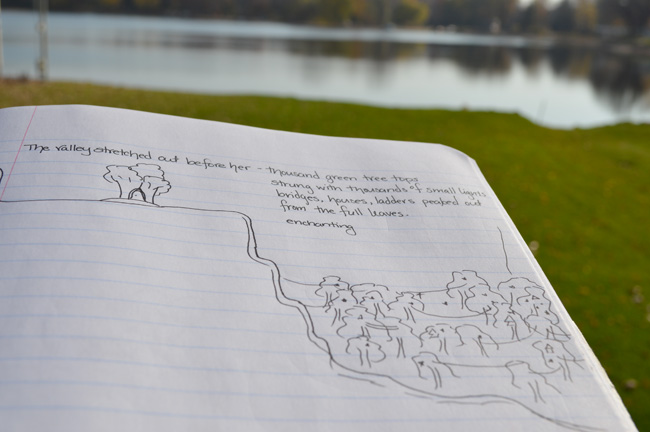 The valley stretched out before her - thousand green tree tops
strung with thousands of small lights
bridges, houses, ladders peaked out
from the full leaves.
enchanting